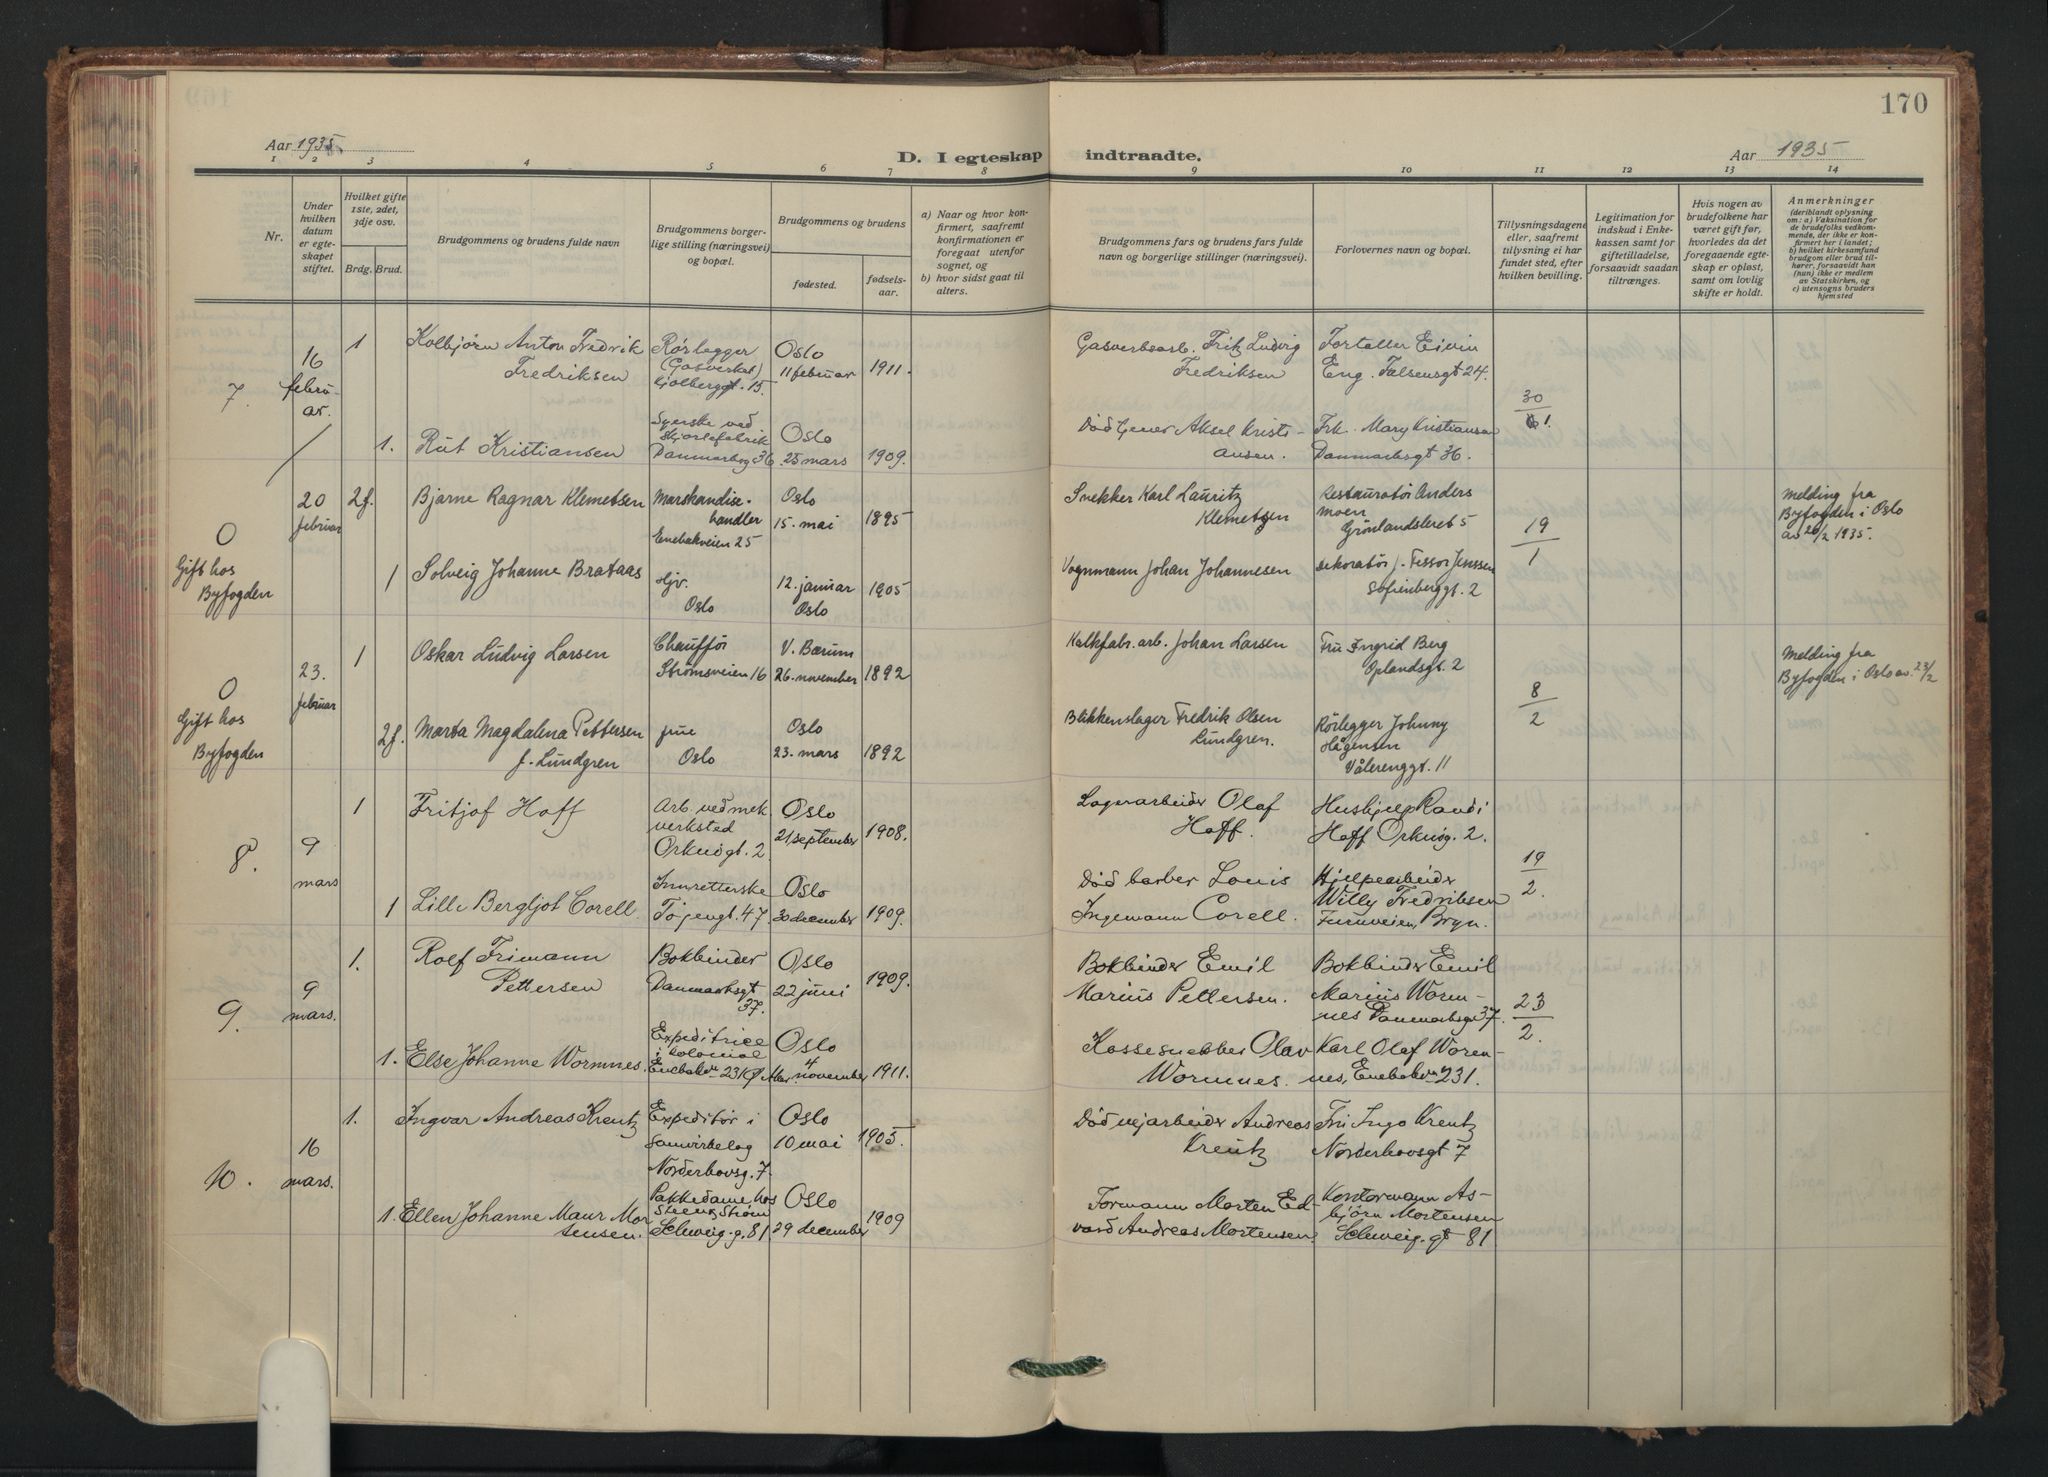 170
Aar 1935
D. I egteskap indtraadte.
Aar 1935
1 2 3 4 5 6 7 8 9 10 11 12 13 14
Nr.
Under hvilken datum er egteskapet stiftet.
Hvilket gifte 1ste, 2det, 3dje osv.
Brdg. Brud.
Brudgommens og brudens fulde navn
Brudgommens borgerlige stilling (næringsvei) og bopæl.
Brudgommens og brudens
fødested.
fødselsaar.
a) Naar og hvor konfirmert, saafremt konfirmationen er foregaat utenfor sognet, og
b) hvor sidst gaat til alters.
Brudgommens fars og brudens fars fulde navn og borgerlige stillinger (næringsvei).
Forlovernes navn og bopæl.
Tillysningsdagene eller, saafremt tillysning ei har fundet sted, efter hvilken bevilling.
Legitimation for indskud i Enkekassen samt for giftetilladelse, forsaavidt saadan tiltrænges.
Hvis nogen av brudefolkene har været gift før, hvorledes da det foregaaende egteskap er opløst, samt om lovlig skifte er holdt.
Anmerkninger
(deriblandt oplysning om: a) Vaksination for de brudefolks vedkommende, der ikke er konfirmert her i landet; b) hvilket kirkesamfund brudgom eller brud tilhører, forsaavidt han (hun) ikke er medlem av Statskirken, og c) utensogns bruders hjemsted
7.
16 februar.
1
Kolbjørn Anton Fredrik
Fredriksen
Rørlegger
(Gasverket)
Gjølberggt. 15.
Oslo
11 februar 1911.
Gasverksarb. Fritz Ludvig
Fredriksen
Forteller Eivin
Eng. Falsensgt 24.
30
1.
1. Rut Kristiansen
Syerske ved
Skjortefabrik
Danmarksg 36.
Oslo
25 mars 1909.
Død Gjener Aksel Kristi-
ansen.
Frk. Mary Kristiansen
Danmarksgt 36.
0
Gift hos
Byfogden
20 februar
2f.
Bjarne Ragnar Klemetsen
Marskandise-
handler
Enebakveien 25
Oslo
15. mai 1895
Snekker Karl Lauritz
Klemetsen
Restauratør Anders
Moen
Grønlandsleret 5
19
1
Melding fra
Byfogden i Oslo
av 20/2 1935.
1 Solveig Johanne Brataas
Hjv.
Oslo
12. januar 1905
Oslo
Vognmann Johan Johannesen
Dekoratør J. Fessor Jenssen
Sofienberggt. 2
0
Gift hos
Byfogden
23. februar
1
Oskar Ludvig Larsen
Chauffør
Strømsveien 16
V. Bærum
26. november 1892
Kalkfabr. arb. Johan Larsen
Fru Ingrid Berg
Oplandsgt. 2
8
2
Melding fra
Byfogden i Oslo av. 23/2
2f. Marta Magdalena Pettersen
f. Lundgren
frue
Oslo
Oslo
23. mars 1892
Blikkenslager Fredrik Olsen
Lundgren.
Rørlegger Johnny
Hågensen
Vålerenggt. 11
8.
9 mars
1
Fritjof Hoff
Arb. ved mek
verksted
Orknøgt. 2
Oslo
21 september 1908.
Lagerarbeider Olaf
Hoff.
Hushjelp Randi
Hoff Orknøg. 2.
19
2.
1 Lilli Bergljot Corell
Innretterske
Tøjengt. 47
Oslo
30 december 1909.
Død barber Louis
Ingemann Corell.
Hjelpearbeider
Willy Fredriksen
Furuveien, Bryn.
9.
9 mars.
1.
Rolf Frimann
Pettersen
Bokbinder
Danmarksgt
37.
Oslo
22 juni 1909.
Bokbinder Emil
Marius Pettersen.
Bokbinder Emil
Marius Worm-
nes Danmarksgt 37.
23
2.
1. Else Johanne Wormnes.
Expeditrice
i kolonial
Enebakvn 231
Oslo
4 november 1911.
Kassesnekker Olav
Wormnes.
Karl Olaf Worm-
nes, Enebakvn 231.
10.
16 mars.
1.
Ingvar Andreas Kreutz
Expeditør i
Samvirkelag
Norderhovsg. 7.
Oslo
10 mai 1905.
Død veiarbeider Andreas
Kreutz
Fru Inga Kreutz
Norderhovsgt 7
1. Ellen Johanne Maur Mor
tensen.
Pakkedame hos
Steen & Strøm
Schweig. g. 81
Oslo
29 december 1909
Formann Morten Ed-
vard Andreas Mortensen.
Kontormann As-
bjørn Mortensen
Schweig. gt 81